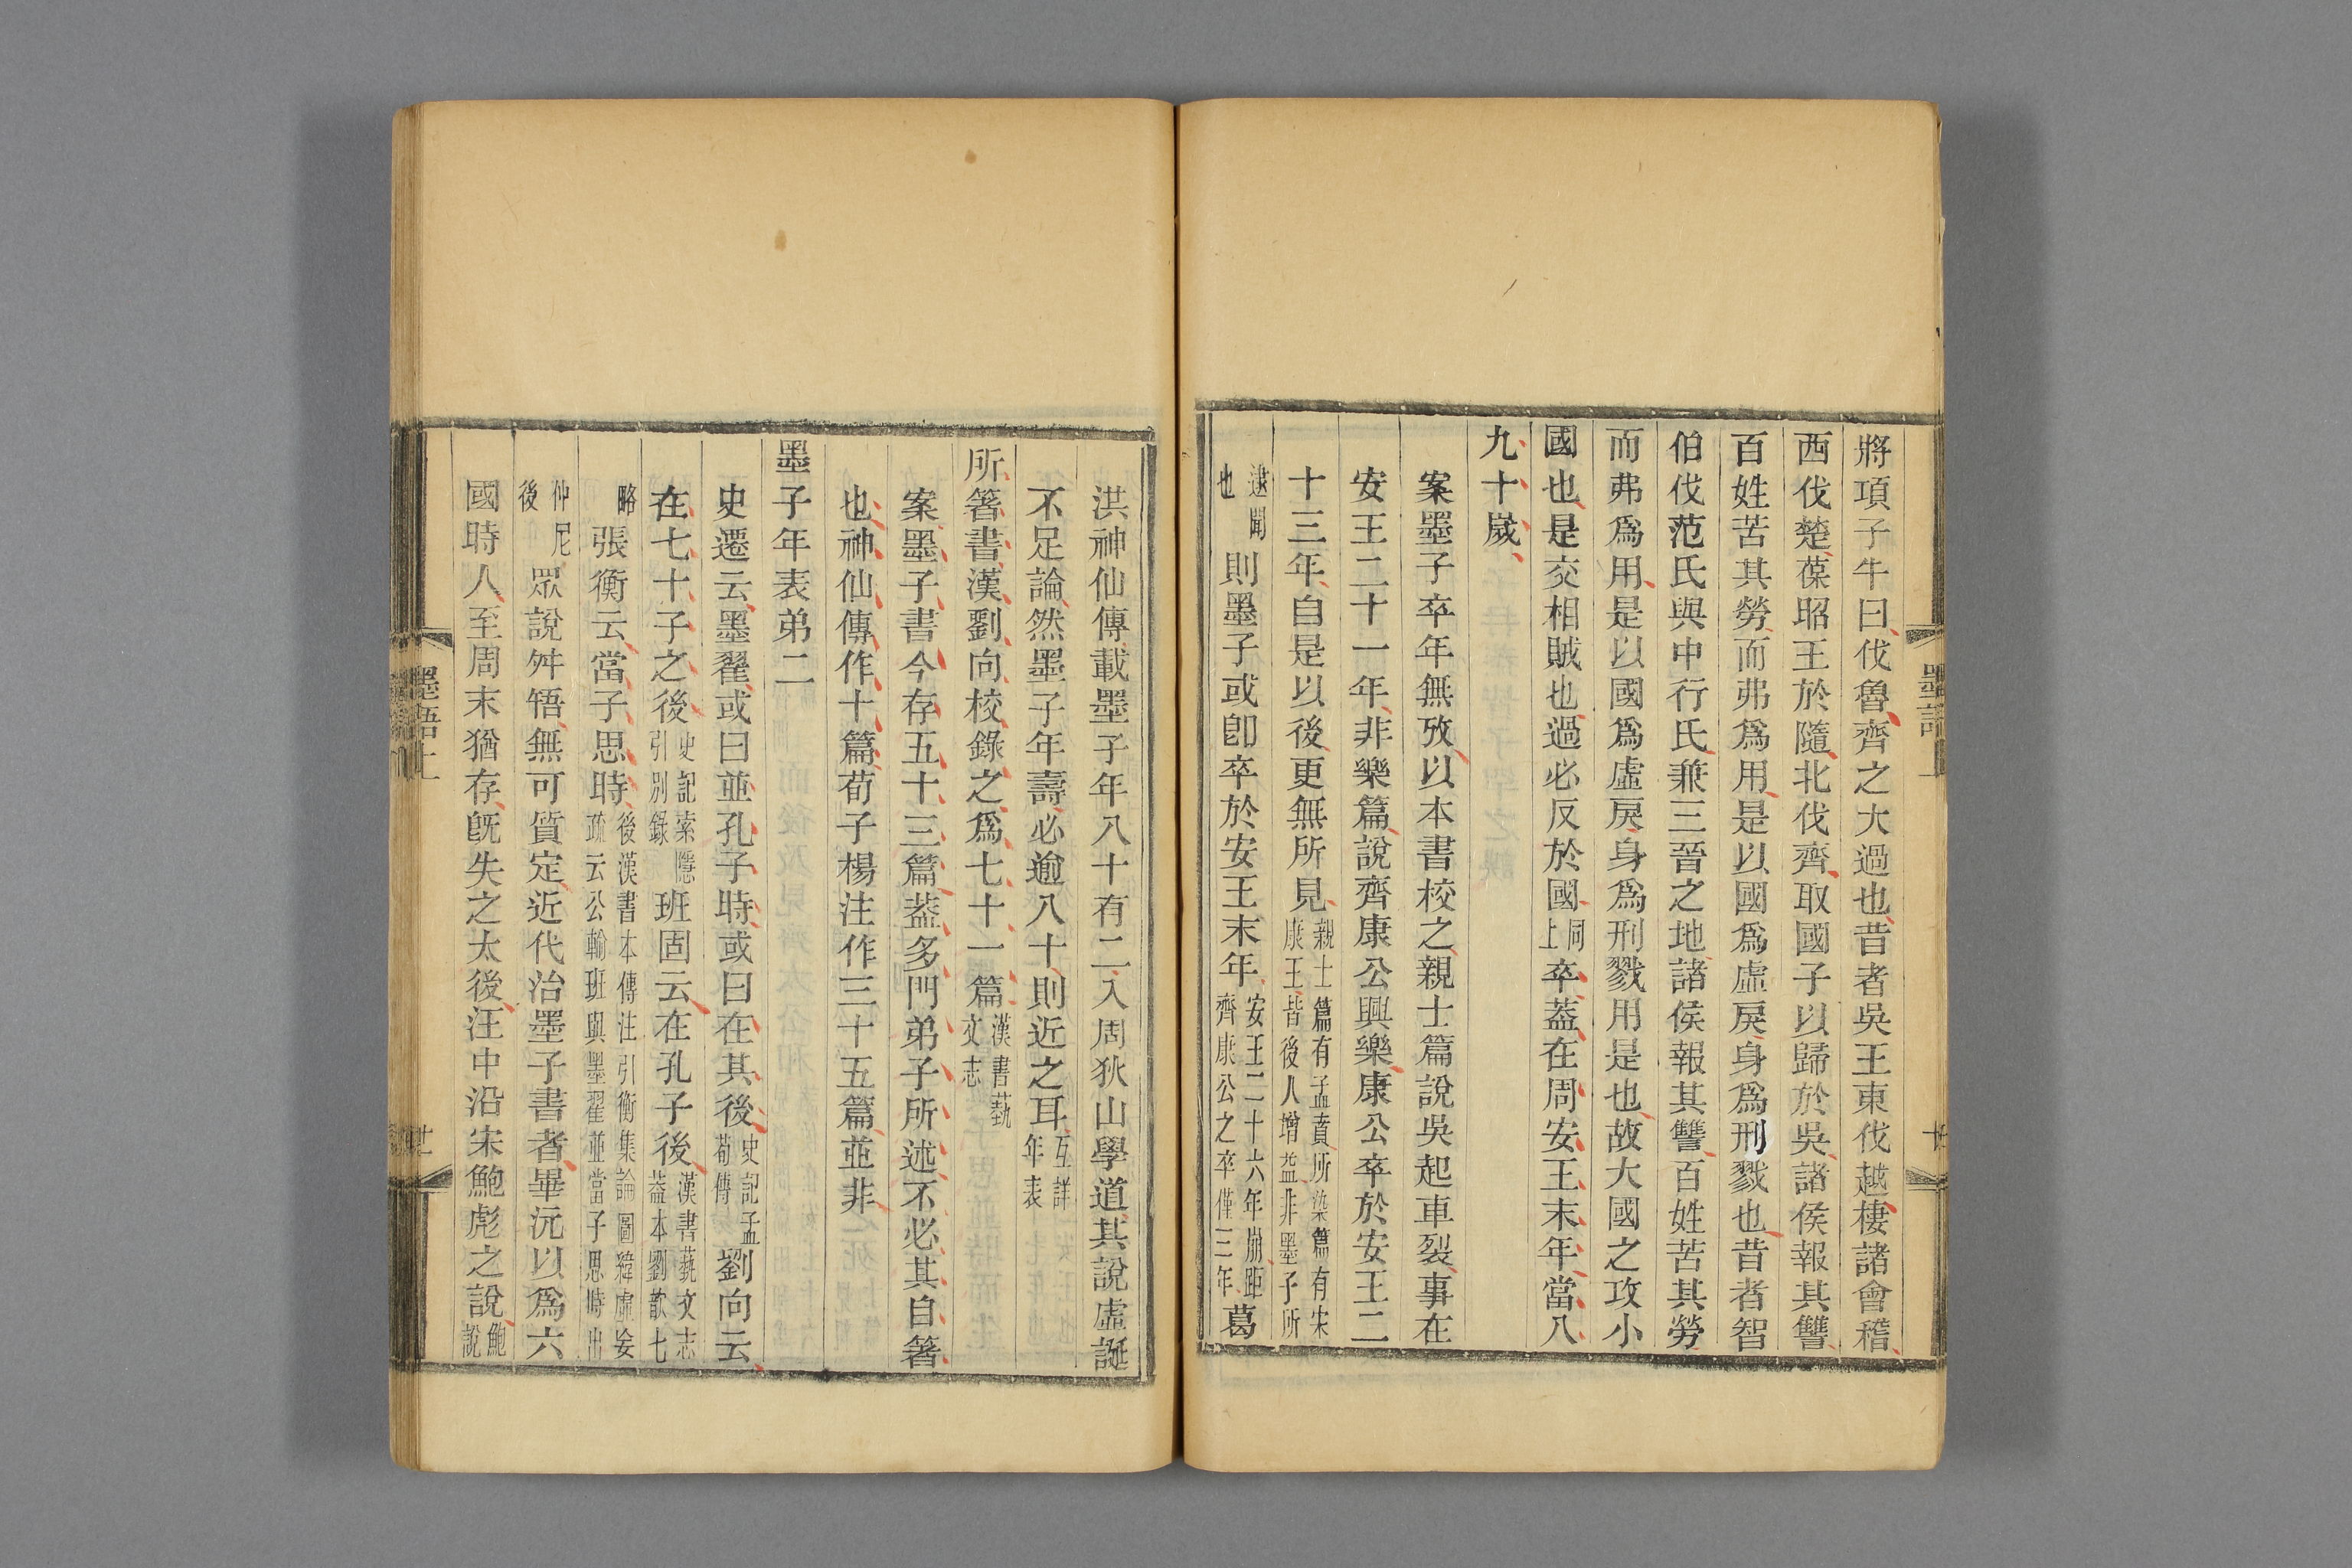 將項子牛曰伐魯齊之大過也昔者吳王東伐越棲諸會稽
西伐楚葆昭王於隨北伐齊取國子以歸於吳諸侯報其讐
百姓苦其勞而弗爲用是以國爲虛戾身爲刑戮也昔者智
伯伐范氏與中行氏兼三晉之地諸侯報其讐百姓苦其勞
而弗爲用是以國爲虛戾身爲刑戮用是也故大國之攻小
國也是交相賊也過必反於國同上卒蓋在周安王末年當八
九十歲
案墨子卒年無攷以本書校之親士篇說吳起車裂事在
安王二十一年非樂篇說齊康公興樂康公卒於安王二
十三年自是以後更無所見親士篇有孟賁所染篇有宋康王皆後人增益非墨子所
逮聞也則墨子或卽卒於安王末年安王二十六年崩距齊康公之卒僅三年葛
洪神仙傳載墨子年八十有二入周狄山學道其說虛誕
不足論然墨子年壽必逾八十則近之耳互詳年表
所箸書漢劉向校錄之爲七十一篇漢書藝文志
案墨子書今存五十三篇葢多門弟子所述不必其自箸
也神仙傳作十篇荀子楊注作三十五篇並非
墨子年表弟二
史遷云墨翟或曰並孔子時或曰在其後史記孟荀傳劉向云
在七十子之後史記索隱引別錄班固云在孔子後漢書藝文志葢本劉歆七
略張衡云當子思時後漢書本傳注引衡集論圖緯虛妄疏云公輸班與墨翟並當子思時出
仲尼後眾說舛啎無可質定近代治墨子書者畢沅以爲六
國時人至周末猶存旣失之太後汪中沿宋鮑彪之說鮑說
墨語上